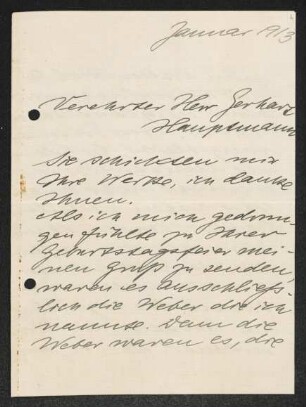 Januar 1913
Verehrter Herr Gerhart
Hauptmann
Sie schickten mir
Ihre Werke, ich danke
Ihnen.
Als ich mich gedrun-
gen fühlte zu Ihrer
Geburtstagsfeier mei-
nen Gruß zu senden,
waren es ausschließ-
lich die Weber die ich
nannte. Denn die
Weber waren es, die